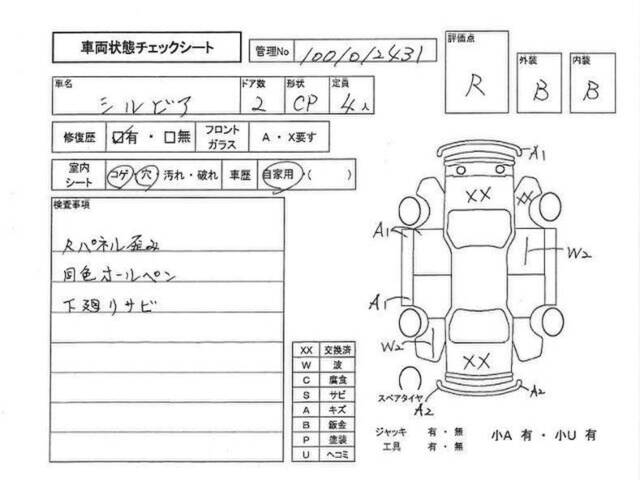 車両状態チェックシート
管理No 100/0/2431
評価点 R
外装 B
内装 B
車名 シルビア
ドア数 2
形状 CP
定員 4人
修復歴 ☑有・□無
フロントガラス A・X要す
室内シート コゲ・穴・汚れ・破れ
車歴 自家用・( )
検査事項
Rパネル歪み
同色オールペン
下廻りサビ
A1
XX
XX
A1
W2
A1
W2
XX
A2
A2
スペアタイヤ
XX 交換済
W 波
C 腐食
S サビ
A キズ
B 鈑金
P 塗装
U ヘコミ
ジャッキ 有・無
工具 有・無
小A 有・小U 有